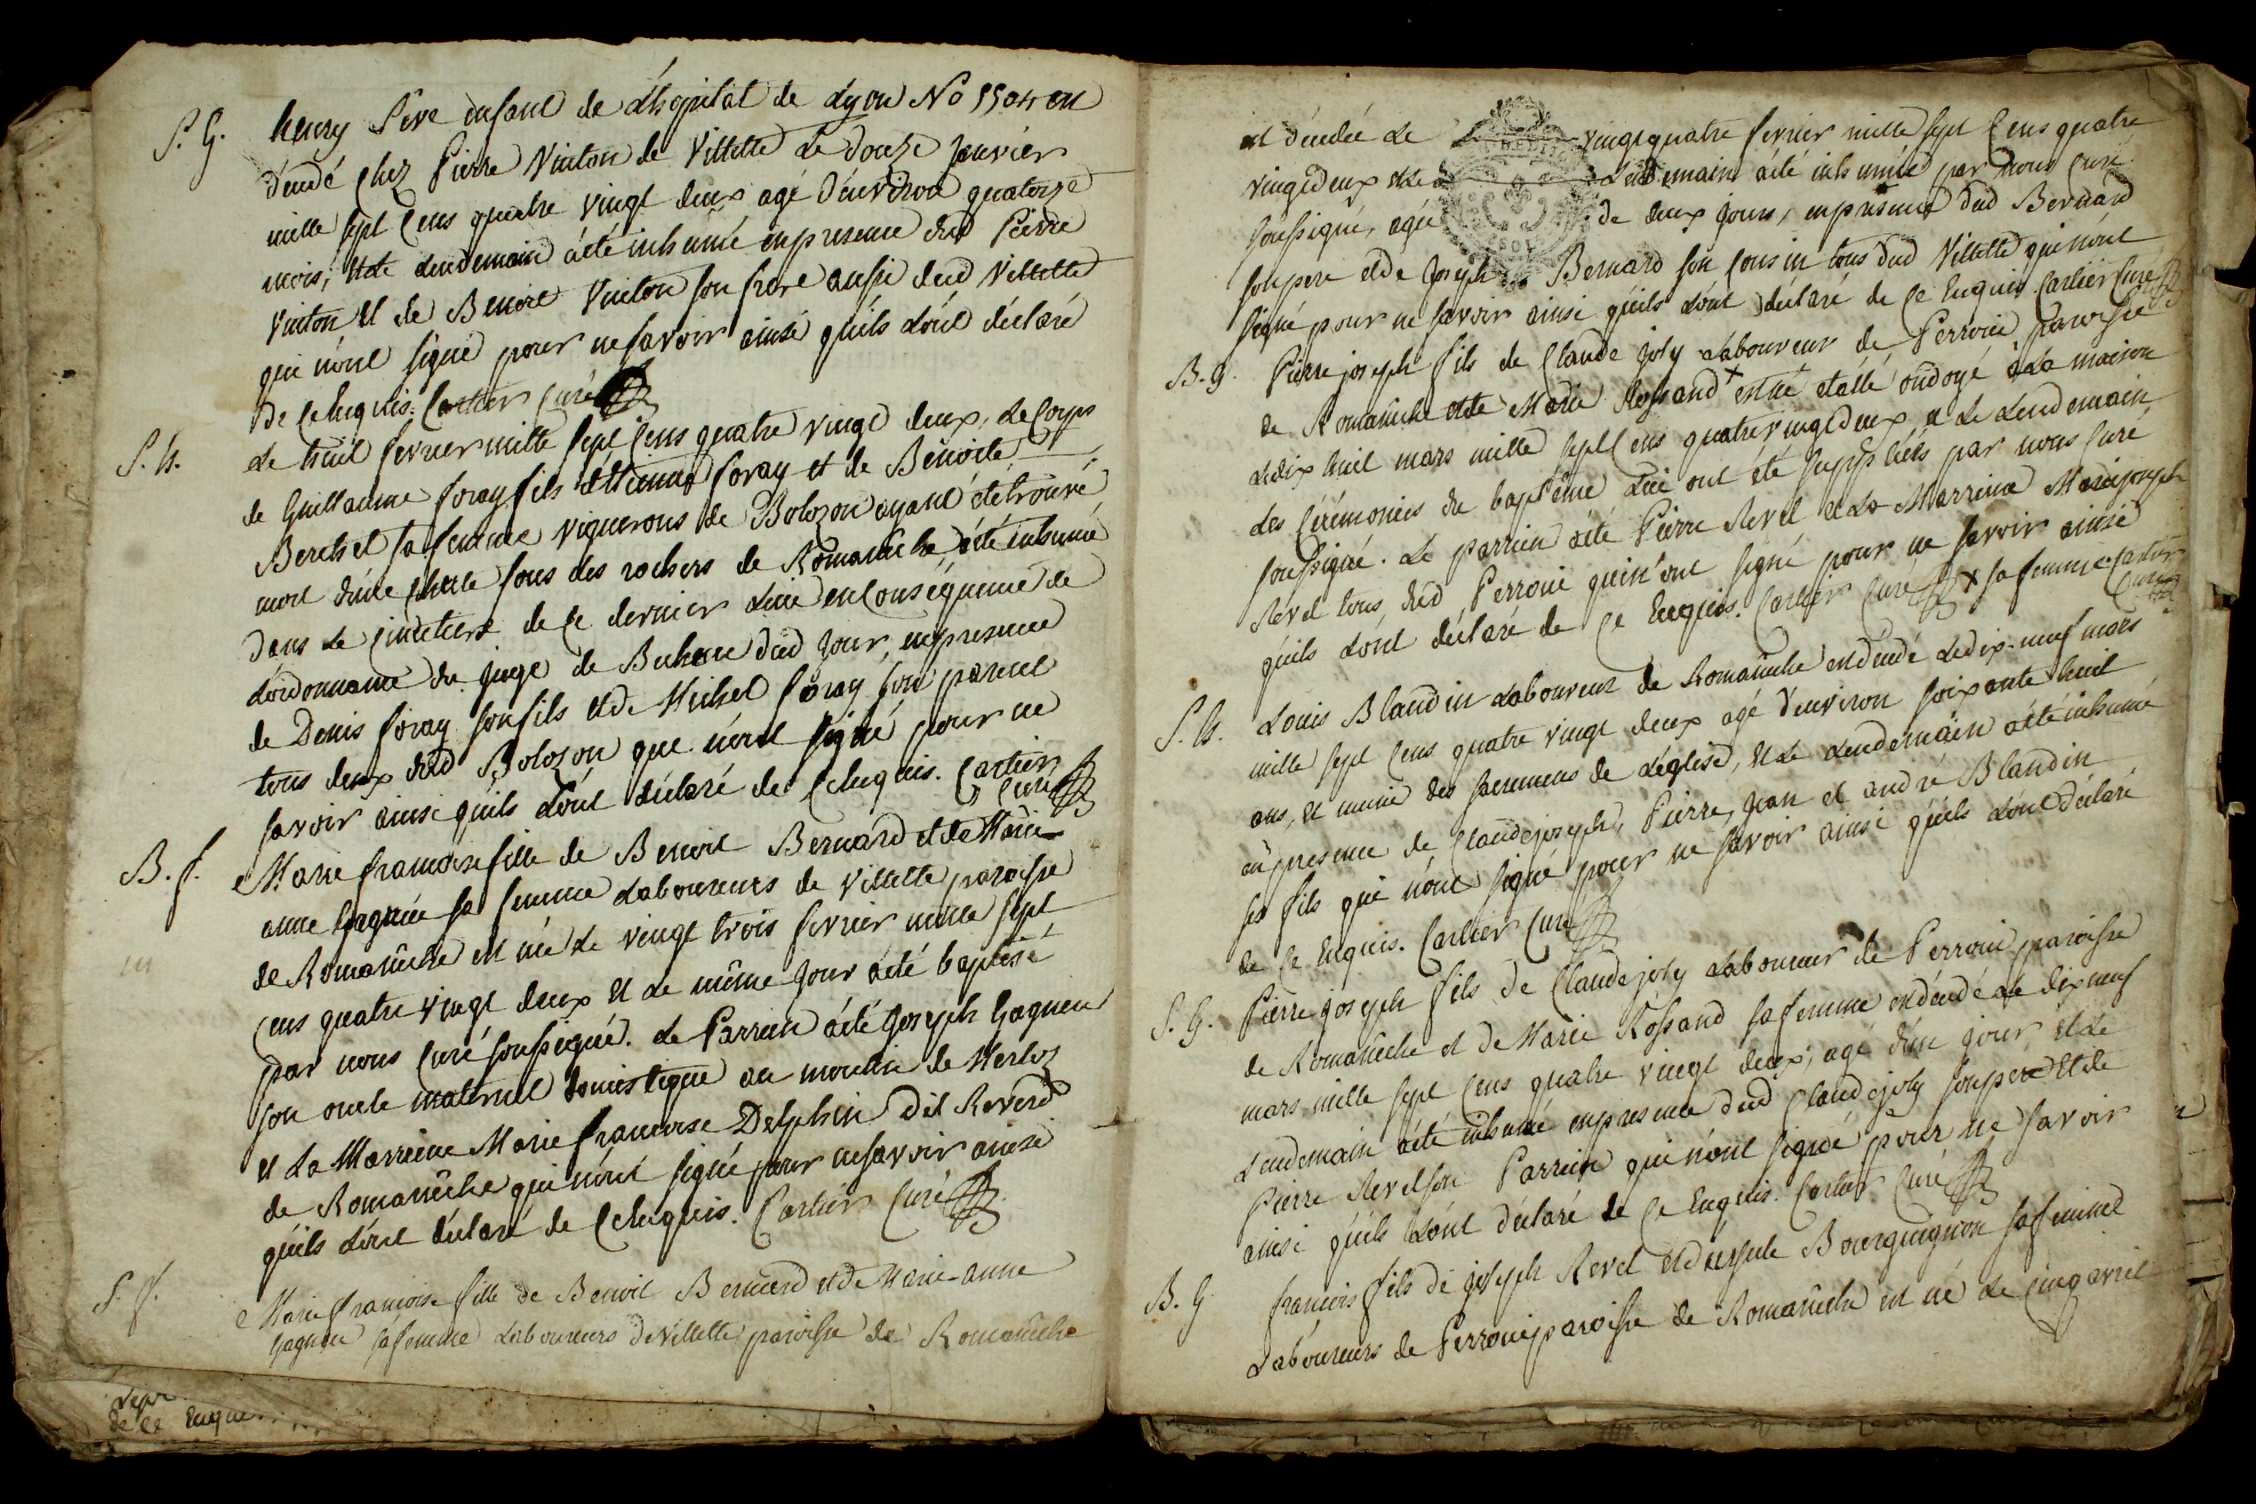 S. G. henry Père enfant de L'hopital de Lyon No 5504 est
décédé Chez Pierre Vinton de Villette Le douze janvier
mille sept Cens quatre vingt deux agé d'environ quatorze
mois, et Le Lendemain a été inhumé en presence dud Pierre
Vinton et de Benoit Vinton son frere aussi dud Villette
qui n'ont signé pour ne savoir ainsi qu'ils L'ont déclaré
de Ce Enquis. Cartier Curé
S. h. Le huit fevrier mille sept Cens quatre vingt deux, Le Corps
de Guillaume foray fils d'Etienne foray et de Benoite
sa femme vignerons de Bolozon ayant été trouvé
mort d'une Chute sous des rochers de Romanêche a été inhumé
dans Le Cimetiere de Ce dernier Lieu en Conséquence de
L'ordonnance du juge de Buhenc dud jour, en presence
de Denis foray son fils et de Michel foray son parent
tous deux dud Bolozon qui n'ont signé pour ne
savoir ainsi qu'ils L'ont déclaré de Ce Enquis. Cartier
Curé
B. f. Marie francoise fille de Benoit Bernard et de Marie
anne gagneu sa femme Laboureurs de Villette paroisse
de Romanêche est née Le vingt trois fevrier mille sept
Cens quatre vingt deux et Le même jour a été baptisé
par nous Curé soussigné. Le Parrein a été Joseph Gagneu
son oncle maternel domestique au moulin de Merloz
et La Marreine Marie francoise Delphin dit Reverd
de Romanêche qui n'ont signé pour ne savoir ainsi
qu'ils L'ont déclaré de Ce Enquis. Cartier Curé
S. f. Marie francoise fille de Benoit Bernard et de Marie-anne
gagneu sa femme Laboureurs de Villette paroisse de Romanêche
de Ce Enquis
est décédée Le vingt quatre fevrier mille sept Cens quatre
vingt deux et Le Lendemain a été inhumée par nous Curé
soussigné, agée de deux jours, en presence dud Bernard
son pere et de Joseph Bernard son Cousin tous dud Villette qui n'ont
signé pour ne savoir ainsi qu'ils L'ont déclaré de Ce Enquis Cartier Curé
B. g. Pierre joseph fils de Claude joly Laboureur de Perroué paroisse
de Romanêche et de Marie Rossand + est né et a été ondoyé à La maison
Le dix huit mars mille sept Cens quatre vingt deux, et Le Lendemain
Les Cérémonies du baptême Lui ont été suppléés par nous Curé
soussigné. Le parrein a été Pierre Revel et La Marreine Marie joseph
Revel tous dud Perroué qui n'ont signé pour ne savoir ainsi
qu'ils L'ont déclaré de Ce Enquis. Cartier Curé + sa femme Cartier
Curé
S. h. Louis Blandin Laboureur de Romanêche est décédé Le dix-neuf mars
mille sept Cens quatre vingt deux agé d'environ soixante huit
ans, et munie des sacremens de L'église, et Le Lendemain a été inhumé
en presence de Claude joseph, Pierre, Jean et andré Blandin
ses fils qui n'ont signé pour ne savoir ainsi qu'ils L'ont déclaré
de Ce Enquis. Cartier Curé
S. G. Pierre-joseph fils de Claude joly Laboureur de Perroué paroisse
de Romanêche et de Marie Rossand sa femme est décédé Le dix neuf
mars mille sept Cens quatre vingt deux, agé d'un jour, et Le
Lendemain a été inhumé en presence dud Claude joly son pere et de
Pierre Revel son Parrein qui n'ont signé pour ne savoir
ainsi qu'ils L'ont déclaré de Ce Enquis. Cartier Curé
B. G. francois fils de joseph Revel et d'ursule Bourguignon sa femme
Laboureurs de Perroué paroisse de Romanêche est né Le Cinq avril